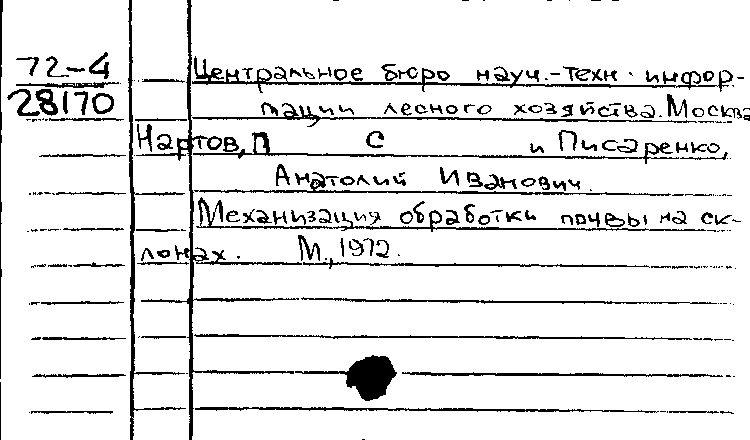 72-4
28170
Центральное бюро науч.-техн. инфор-
мации лесного хозяйства. Москва
Нартов, П С и Писаренко,
Анатолий Иванович.
Механизация обработки почвы на ск-
лонах. М., 1972.